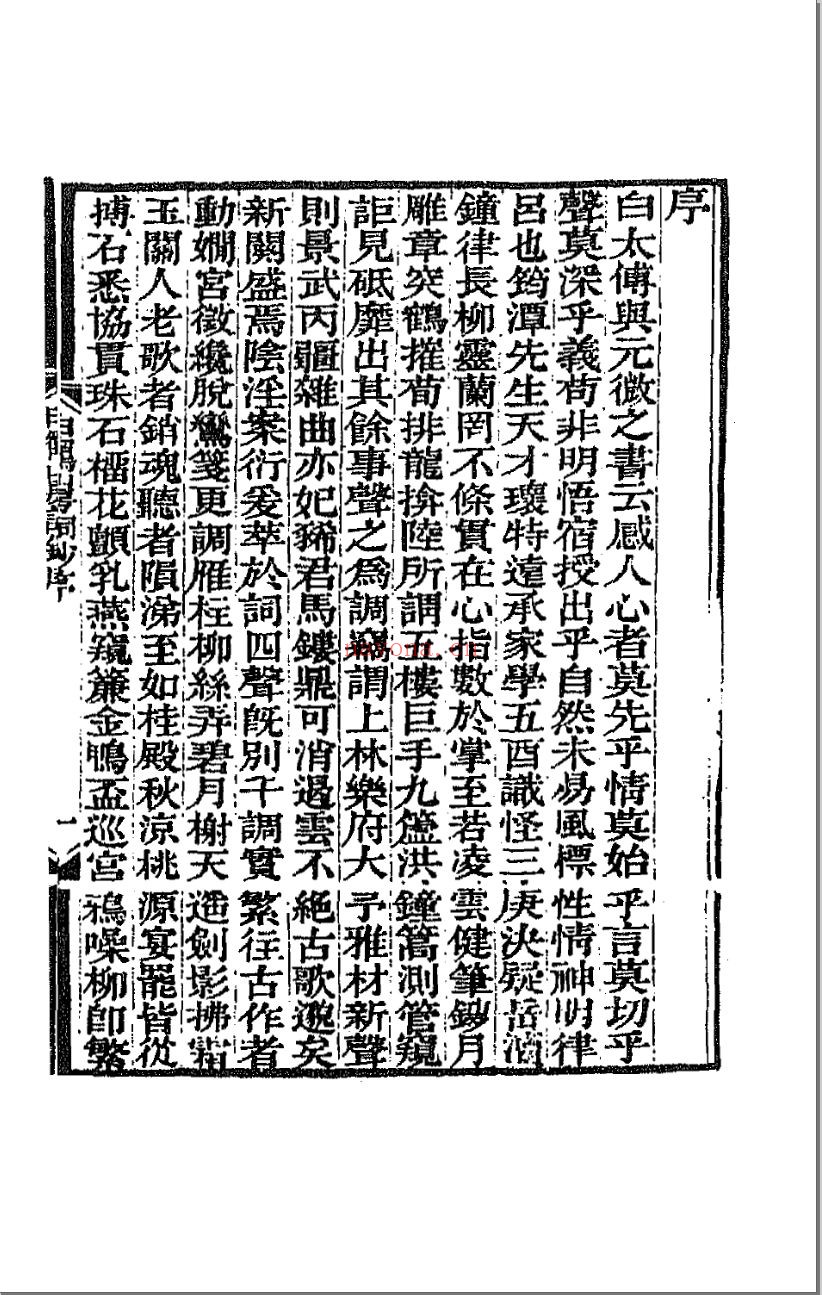 序
白太傅與元微之書云感人心者莫先乎情莫始乎言莫切乎
聲莫深乎義苟非明悟宿授出乎自然未易風標性情神明律
呂也筠潭先生天才瓌特遠承家學五酉識怪三庚決疑岳瀆
鐘律長柳靈蘭罔不條貫在心指數於掌至若凌雲健筆鏤月
雕章突鶴摧荀排龍揜陸所謂五樓巨手九簴洪鐘篙測管窺
詎見砥靡出其餘事聲之為調竊謂上林樂府大予雅材新聲
則景武丙疆雜曲亦妃豨君馬鏤鼎可消遏雲不絕古歌邈矣
新闋盛焉陰淫案衍爰萃於詞四聲旣別千調實繁往古作者
動嫺宮徵纔脫鸞箋更調雁柱柳絲弄碧月榭天遙劍影拂霜
玉關人老歌者銷魂聽者隕涕至如桂殿秋涼桃源宴罷皆從
搏石悉協貫珠石榴花顫乳燕窺簾金鴨盃巡宮鴉噪柳卽繁
白鶴山房詞鈔序
一